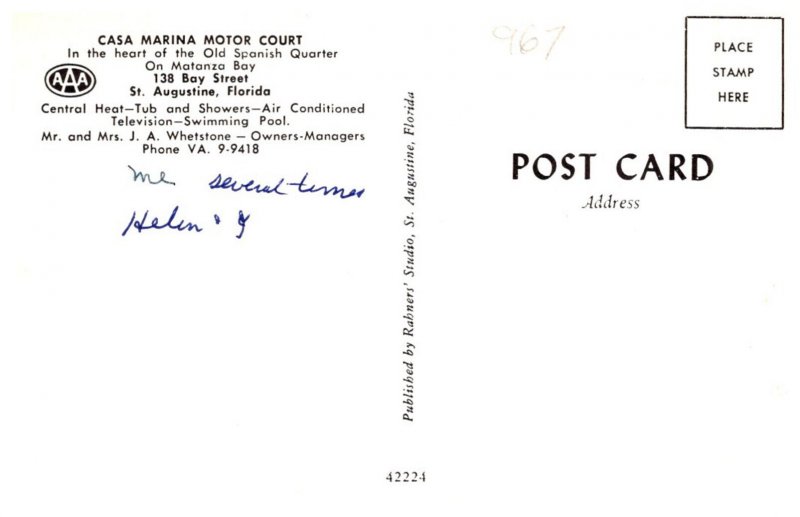 CASA MARINA MOTOR COURT
In the heart of the Old Spanish Quarter
On Matanza Bay
AAA
138 Bay Street
St. Augustine, Florida
Central Heat—Tub and Showers—Air Conditioned
Television—Swimming Pool.
Mr. and Mrs. J. A. Whetstone — Owners-Managers
Phone VA. 9-9418
me several times
Helen &
Published by Rahners' Studio, St. Augustine, Florida
42224
967
PLACE
STAMP
HERE
POST CARD
Address